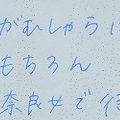 がむしゃらに
もちろん
奈良女で待